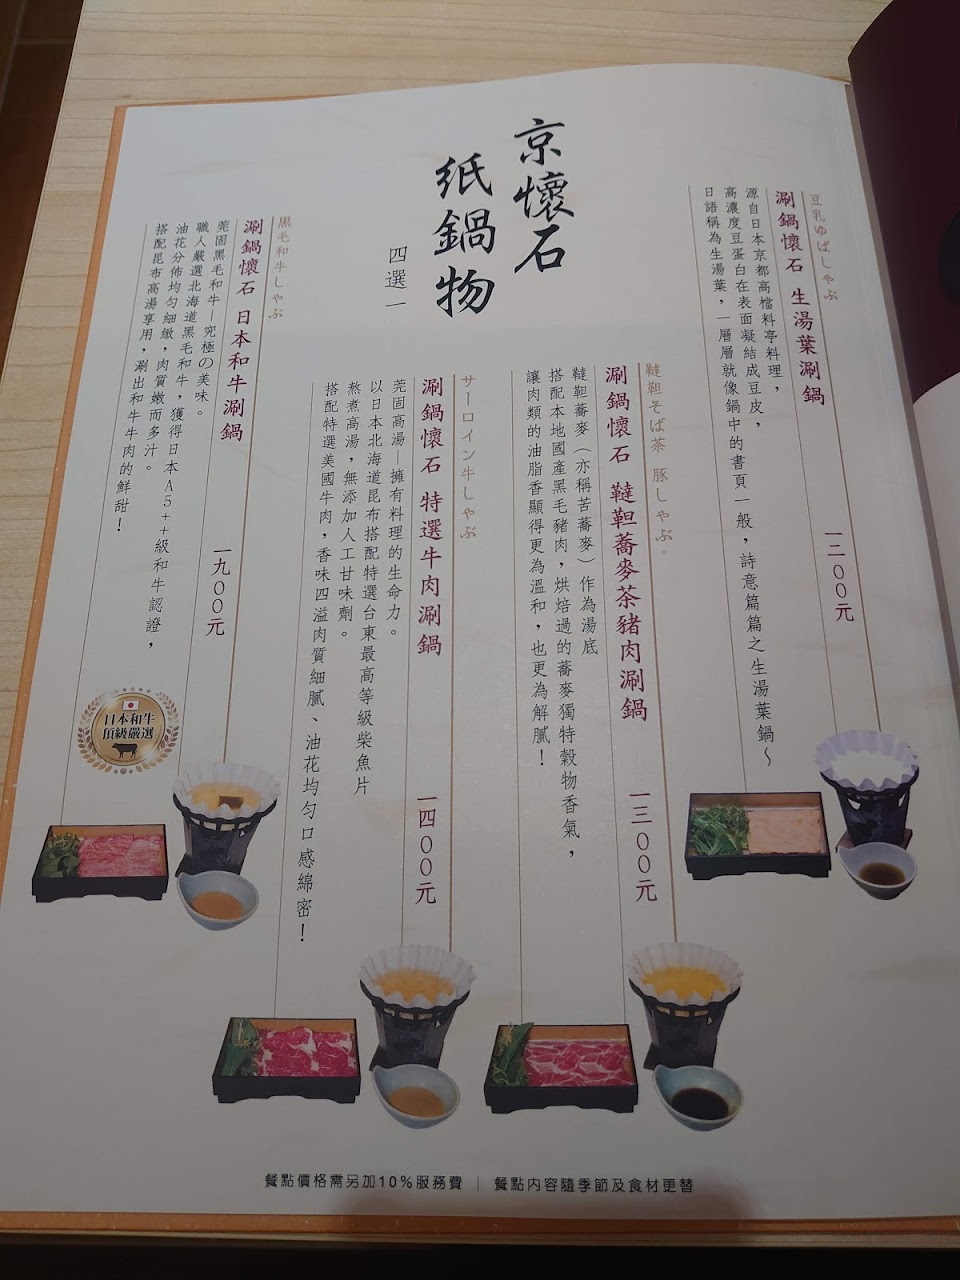 京懷石
紙鍋物
四選一
豆乳ゆばしゃぶ
涮鍋懷石 生湯葉涮鍋
一二００元
源自日本京都高檔料亭料理，
高濃度豆蛋白在表面凝結成豆皮，
日語稱為生湯葉，一層層就像鍋中的書頁一般，詩意篇篇之生湯葉鍋～
韃靼そば茶 豚しゃぶ
涮鍋懷石 韃靼蕎麥茶豬肉涮鍋
一三００元
韃靼蕎麥（亦稱苦蕎麥）作為湯底
搭配本地國產黑毛豬肉，烘焙過的蕎麥獨特穀物香氣，
讓肉類的油脂香顯得更為溫和，也更為解膩！
サーロイン牛しゃぶ
涮鍋懷石 特選牛肉涮鍋
一四００元
莞固高湯—擁有料理的生命力。
以日本北海道昆布搭配特選台東最高等級柴魚片
熬煮高湯，無添加人工甘味劑。
搭配特選美國牛肉，香味四溢肉質細膩、油花均勻口感綿密！
黒毛和牛しゃぶ
涮鍋懷石 日本和牛涮鍋
一九００元
莞固黑毛和牛—究極の美味。
職人嚴選北海道黑毛和牛，獲得日本A5++級和牛認證，
油花分佈均勻細緻，肉質嫩而多汁。
搭配昆布高湯享用，涮出和牛牛肉的鮮甜！
日本和牛
頂級嚴選
餐點價格需另加10%服務費｜餐點內容隨季節及食材更替